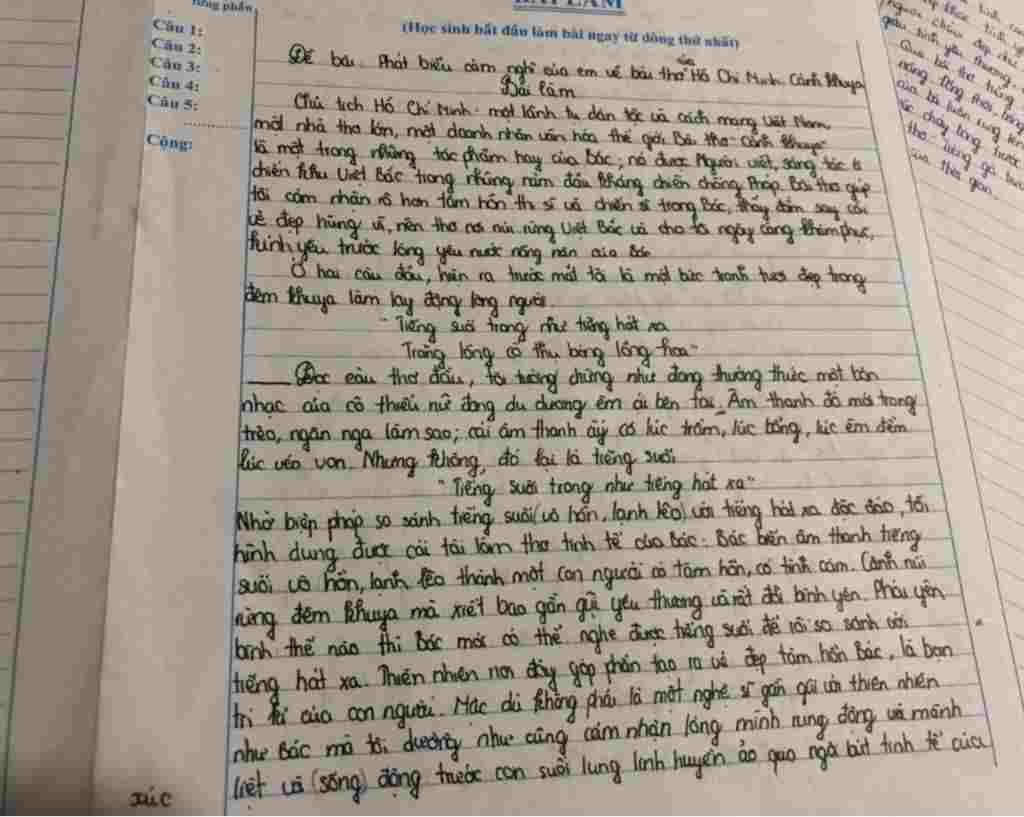 BÀI LÀM
từng phần
(Học sinh bắt đầu làm bài ngay từ dòng thứ nhất)
Câu 1:
Câu 2:
Câu 3:
Câu 4:
Câu 5:
Cộng:
Đề bài: Phát biểu cảm nghĩ của em về bài thơ của Hồ Chí Minh. Cảnh khuya
Bài làm
Chủ tịch Hồ Chí Minh - một lãnh tụ dân tộc và cách mạng Việt Nam
một nhà thơ lớn, một doanh nhân văn hóa thế giới. Bài thơ "Cảnh khuya"
là một trong những tác phẩm hay của Bác, nó được Người viết, sáng tác ở
chiến khu Việt Bắc trong những năm đầu kháng chiến chống Pháp. Bài thơ giúp
tôi cảm nhận rõ hơn tâm hồn thi sĩ và chiến sĩ trong Bác, thấy đắm say cái
vẻ đẹp hùng vĩ, nên thơ nơi núi rừng Việt Bắc và cho ta ngày càng khâm phục,
kính yêu trước lòng yêu nước nồng nàn của Bác
Ở hai câu đầu, hiện ra trước mắt tôi là một bức tranh tươi đẹp trong
đêm khuya làm lay động lòng người.
"Tiếng suối trong như tiếng hát xa
Trăng lồng cổ thụ bóng lồng hoa"
Đọc câu thơ đầu, tôi tưởng chừng như đang thưởng thức một bản
nhạc của cô thiếu nữ đang du dương êm ái bên tai. Âm thanh đó mới trong
trẻo, ngân nga làm sao; cái âm thanh ấy có lúc trầm, lúc bổng, lúc êm đềm
lúc véo von. Nhưng không, đó lại là tiếng suối.
"Tiếng suối trong như tiếng hát xa"
Nhờ biện pháp so sánh tiếng suối (vô hồn, lạnh lẽo) với tiếng hát xa độc đáo, tôi
hình dung được cái tài làm thơ tinh tế của Bác. Bác biến âm thanh tiếng
suối vô hồn, lạnh lẽo thành một con người có tâm hồn, có tình cảm. Cảnh núi
rừng đêm khuya mà xiết bao gần gũi yêu thương và rất đỗi bình yên. Phải yên
bình thế nào thì Bác mới có thể nghe được tiếng suối để rồi so sánh với
tiếng hát xa. Thiên nhiên nơi đây góp phần tạo ra vẻ đẹp tâm hồn Bác, là bạn
tri kỉ của con người. Mặc dù không phải là một nghệ sĩ gần gũi với thiên nhiên
như Bác mà tôi dường như cũng cảm nhận lòng mình rung động và mãnh
liệt và (sống) động trước con suối lung linh huyền ảo qua ngòi bút tinh tế của
xúc